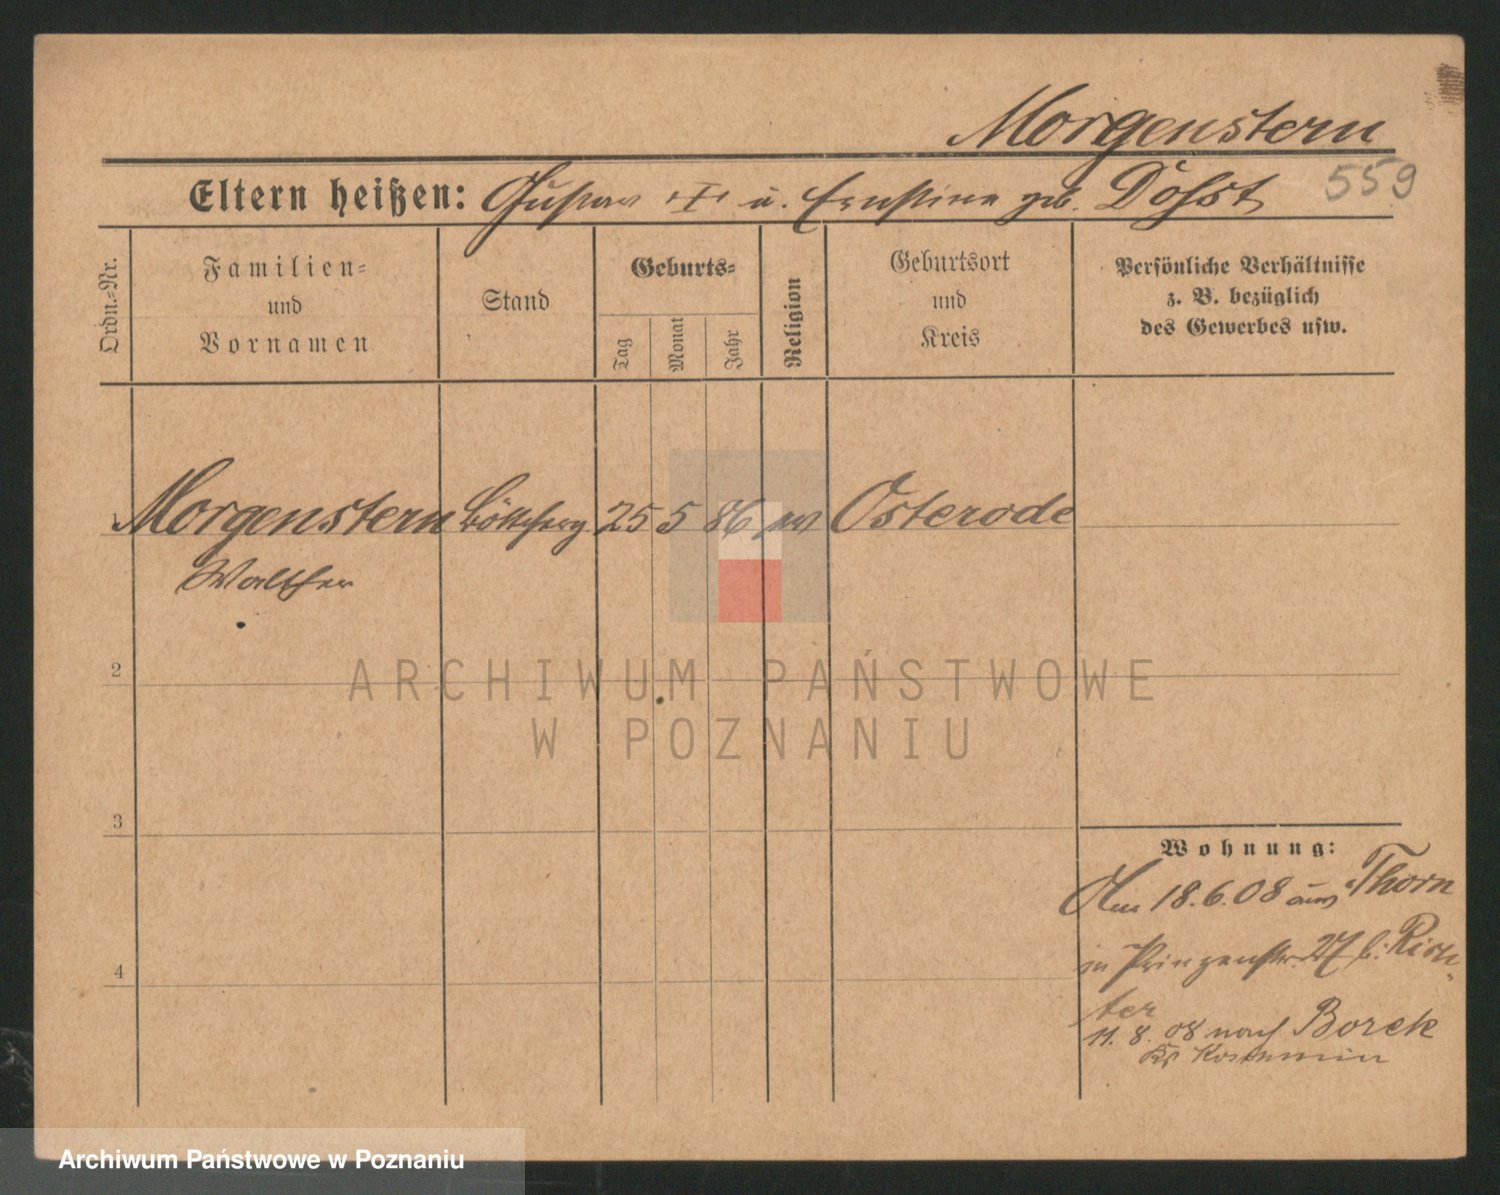 Morgenstern
559
Eltern heißen: Gustav + u. Ernstine geb. Döhst
Ordn.-Nr.
Familien-
und
Vornamen
Stand
Geburts-
Tag
Monat
Jahr
Religion
Geburtsort
und
Kreis
Persönliche Verhältnisse
z. B. bezüglich
des Gewerbes usw.
1 Morgenstern Böttcherg. 25 5 86 ev Osterode
Walther
2
ARCHIWUM PAŃSTWOWE
W POZNANIU
3
Wohnung:
Am 18.6.08 aus Thorn
4
in Prinzenstr. 27 b.
ter
11. 8. 08 nach Borek
Kr Koschmin
Archiwum Państwowe w Poznaniu